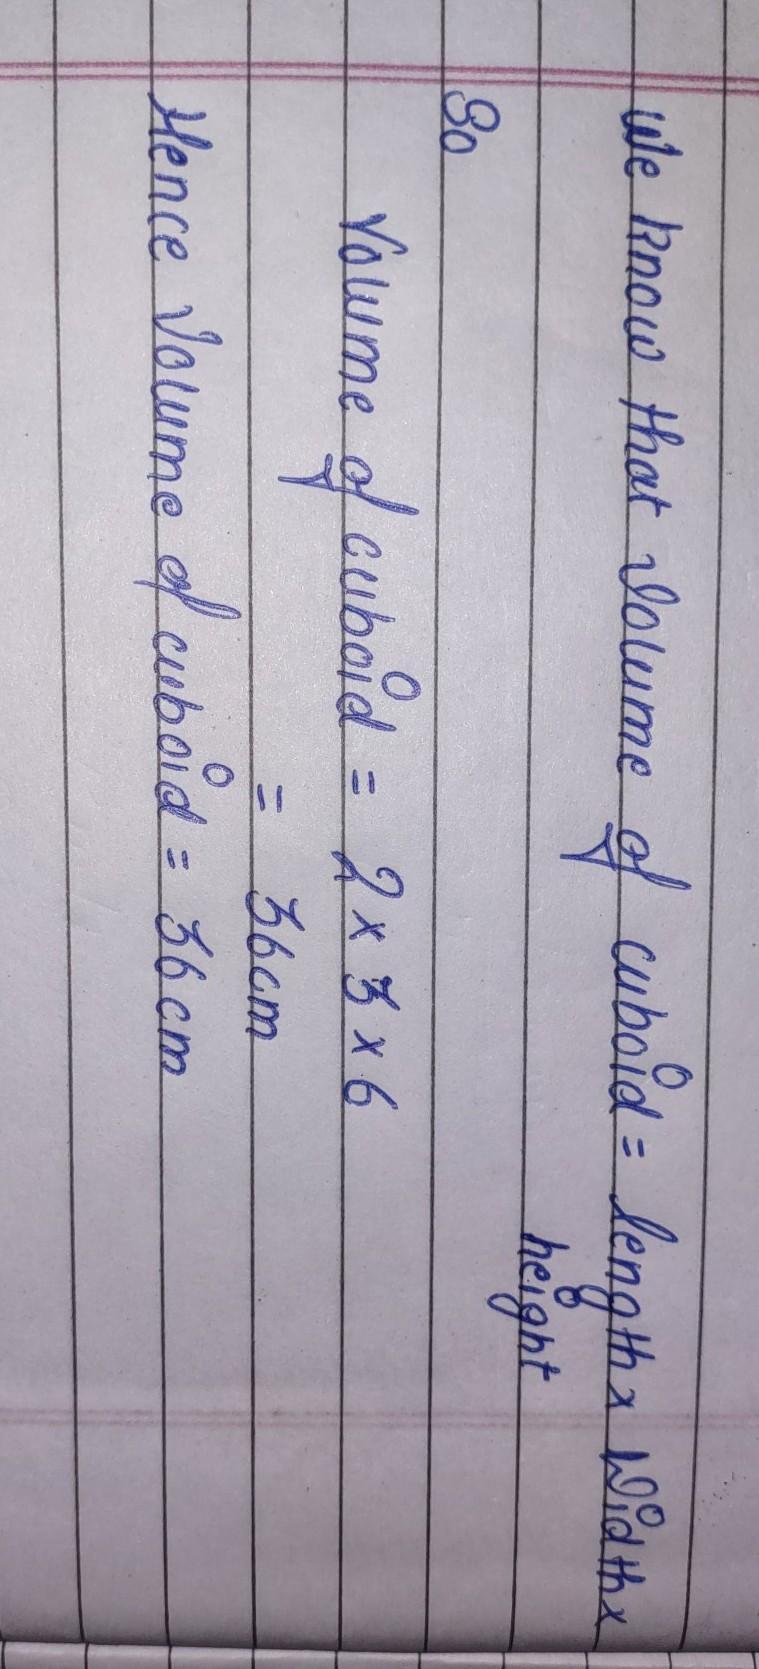 We know that Volume of cuboid = length x Width x
height
So
Volume of cuboid = 2 x 3 x 6
= 36cm
Hence Volume of cuboid = 36cm